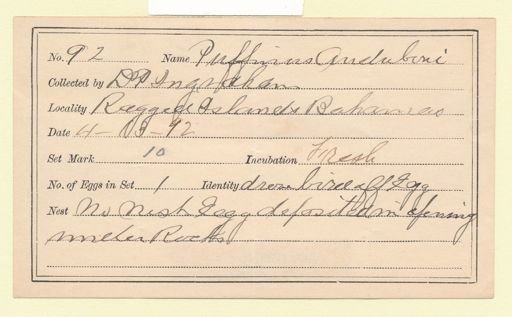 No. 92 Name Puffinus auduboni
Collected by D P Ingraham
Locality Ragged Islands Bahamas
Date 4 - 13 - 92
Set Mark 10 Incubation Fresh
No. of Eggs in Set 1 Identity drove bird off Egg
Nest No nest Egg deposited in opening
under Rocks